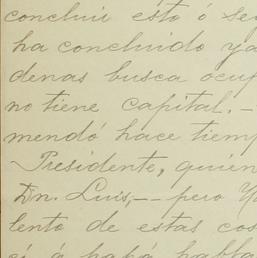 concluir esto ó se
ha concluido ya
denas busca ocup
no tiene capital. -
mendó hace tiemp
Presidente, quien
Dn. Luis, -- pero
lento de estas cos